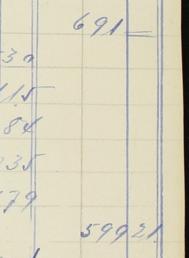 691 —
30
115
84
35
79
599 21